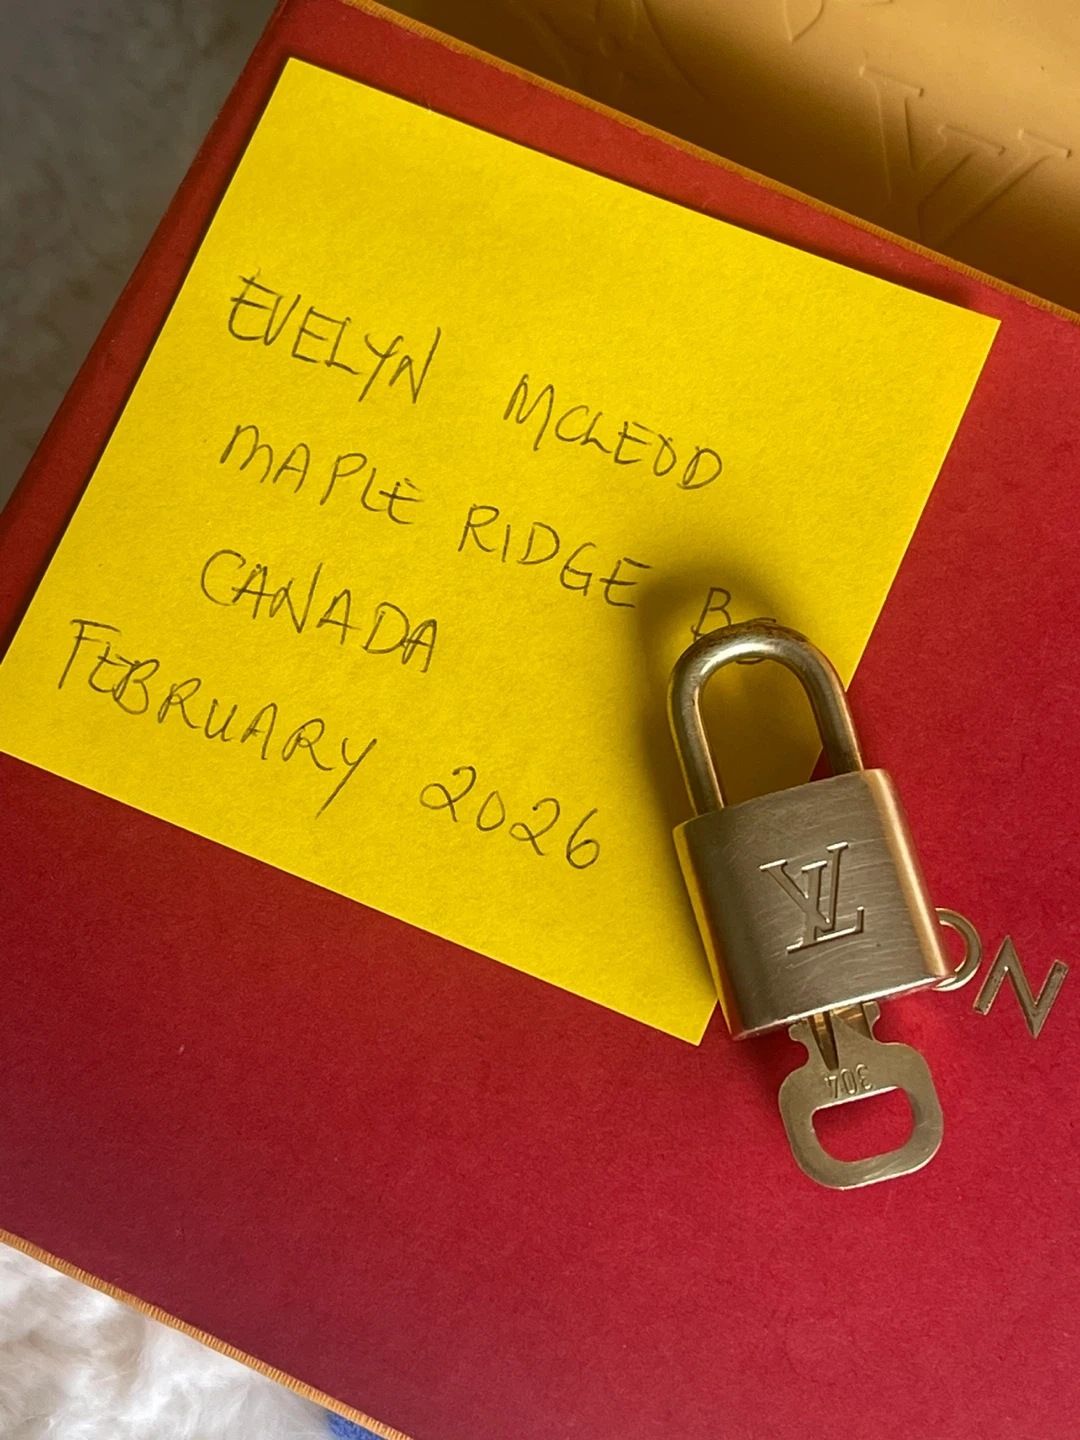 EVELYN MCLEOD
MAPLE RIDGE BC
CANADA
FEBRUARY 2026
LV
ON
304
LV